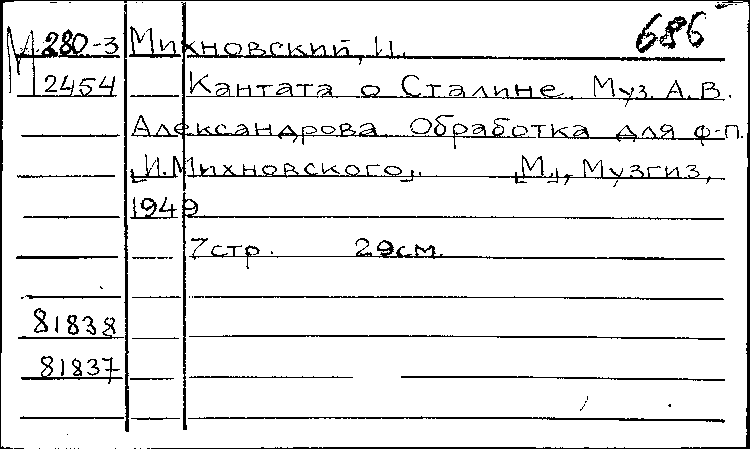 М 280-3 Михновский, И. 686
2454 Кантата о Сталине. Муз. А.В.
Александрова. Обработка для ф-п.
[И. Михновского]. [М.], Музгиз,
1949
7стр. 29см.
81838
81837